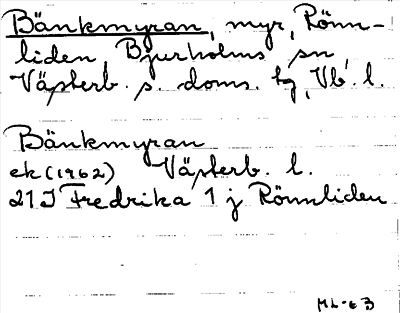 Bänkmyran, myr, Rönn-
liden, Bjurholms sn,
Västerb. s. doms. tg, Vb. l.
Bänkmyran
ek (1962) Västerb. l.
21 I Fredrika 1 j Rönnliden